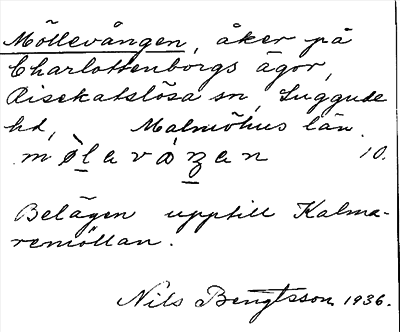 Möllevången, åker på
Charlottenborgs ägor,
Risekatslösa sn, Luggude
hd, Malmöhus län.
mòlavȧʒan 10.
Belägen upptill Kalma-
remöllan.
Nils Bengtsson 1936.